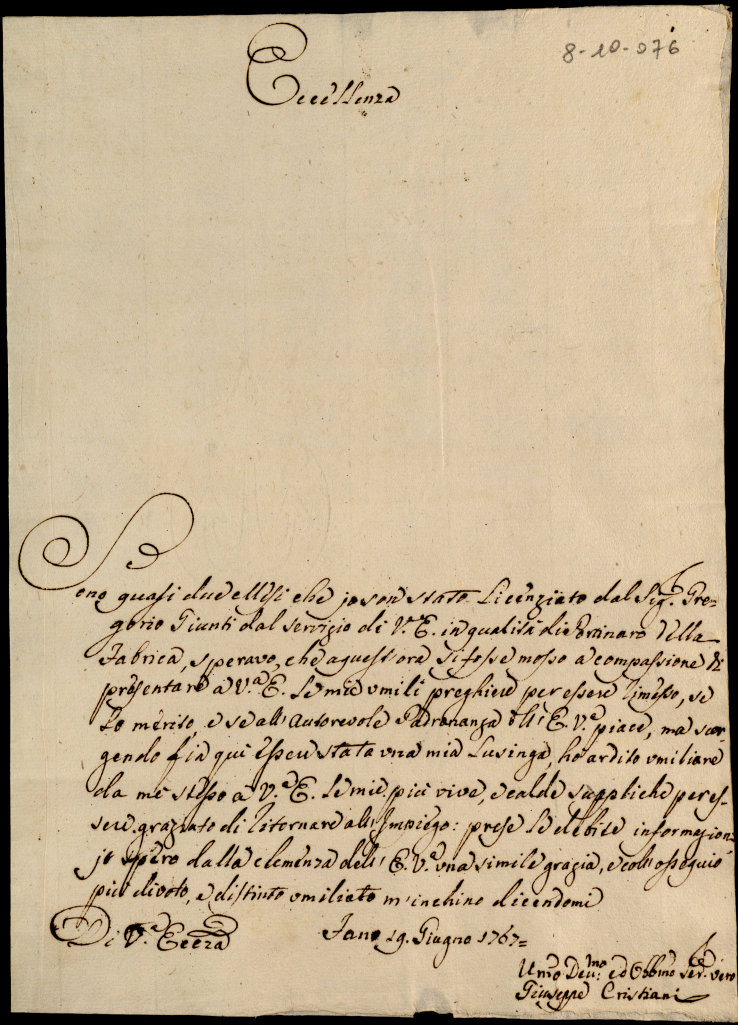 8-10-976
Eccellenza
Sono quasi due Mesi che jo son stato Licenziato dal Sig.r Gre=
gorio Giunti dal servizio di V.a E. in qualità di Fornaro della
Fabrica, speravo, che a quest'ora si fosse mosso a compassione di
presentare a V.a E. le mie umili preghiere per essere rimesso, se
lo merito, e se all'Autorevole Padronanza dell'E. V.a piace, ma scor-
gendo fin qui essere stata una mia Lusinga, ho ardito umiliare
da me stesso a V.a E. le mie più vive, e calde suppliche per es-
sere graziato di ritornare all'Impiego: prese le debite informazioni
jo spero dalla clemenza dell'E. V.a una simile grazia, e coll'ossequio
più divoto, e distinto umiliato m'inchino dicendomi
Di V.a Ecc.za
Fano 19. Giugno 1767=
Um.o Dev.mo ed Obbmo Ser.r vero
Giuseppe Cristiani